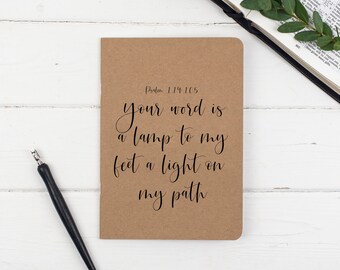 Psalm 119:105
Your word is
a lamp to my
feet a light on
my path